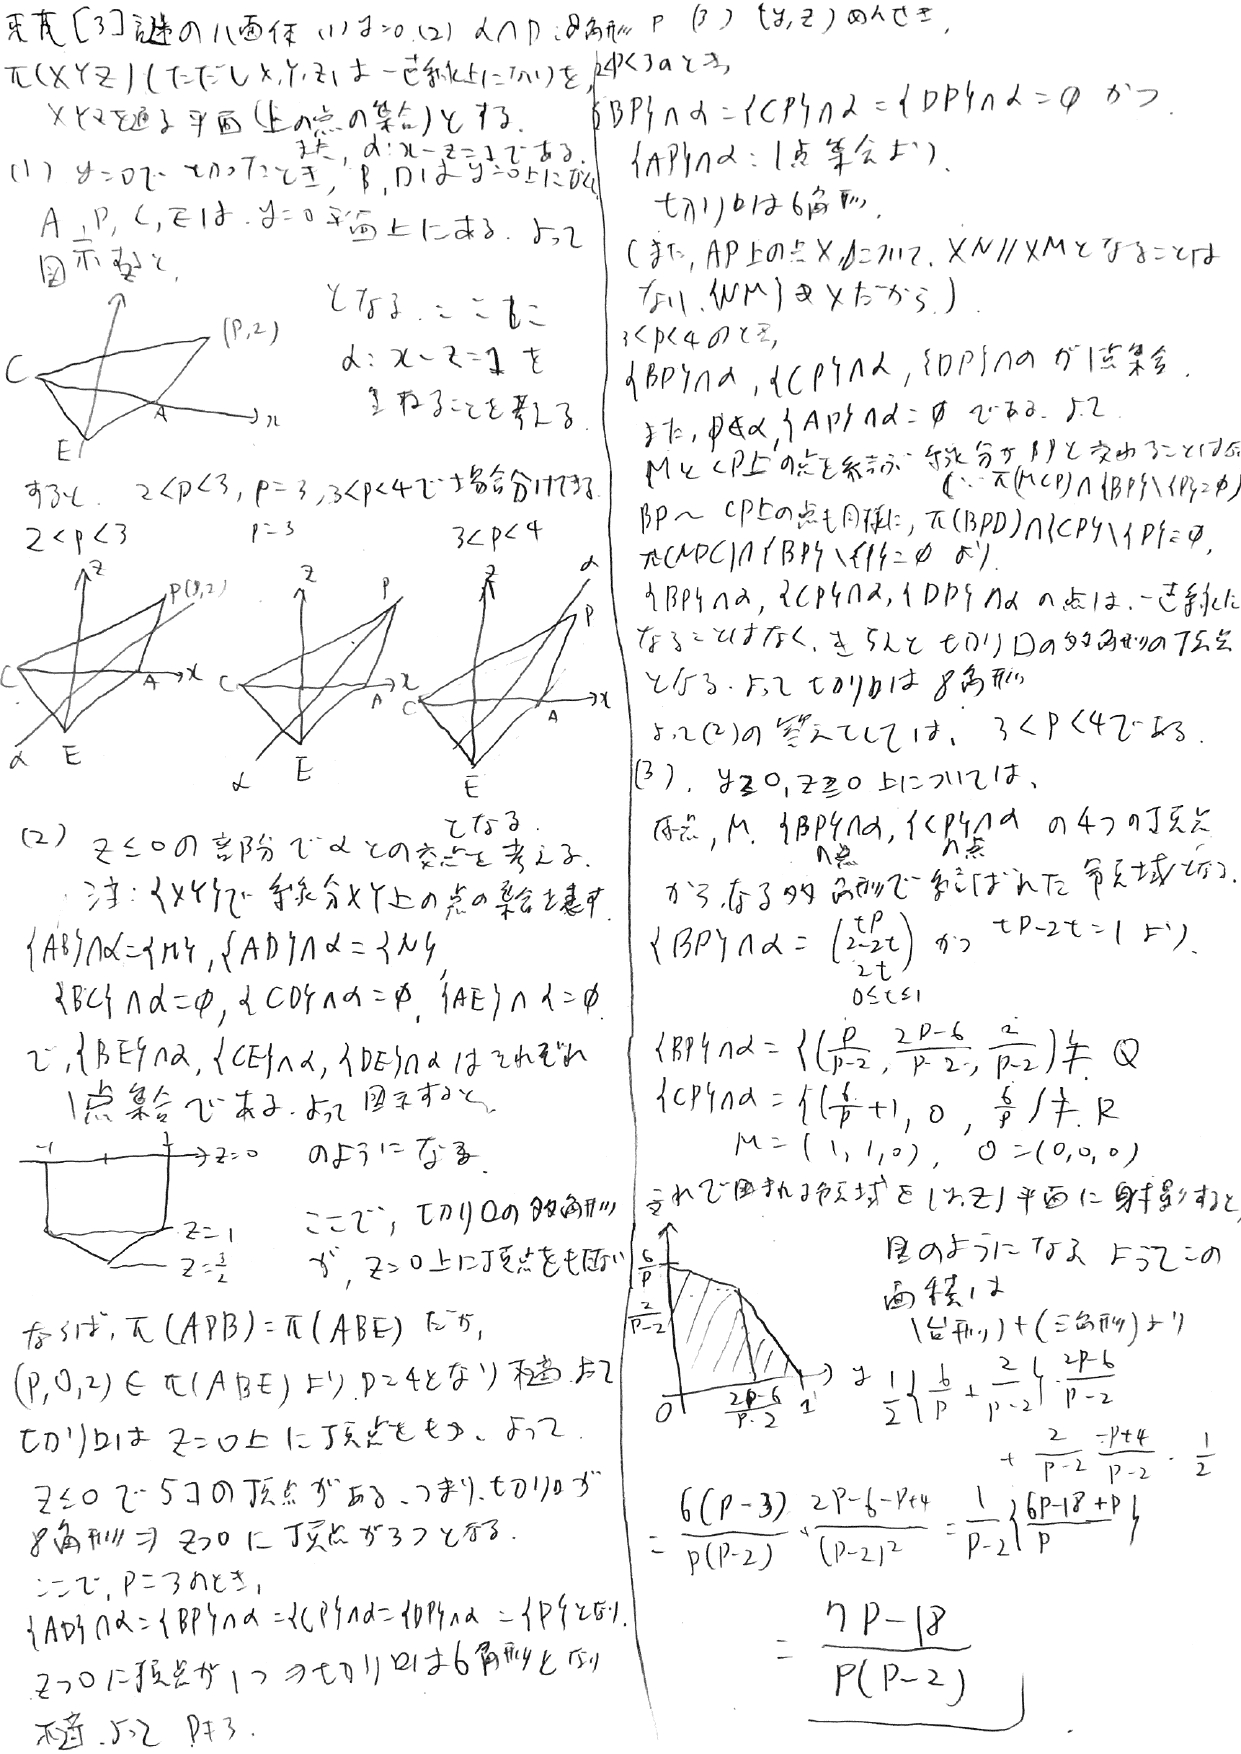 東京[3] 謎の八面体 (1) y=0 (2) α∩P : 8角形 P (3) (y,z) めんせき.
π(XYZ) (ただし X,Y,Zは一直線上にない) を,
XYZを通る平面(上の点の集合)とする.
また, α: x-z=1である.
(1) y=0で切ったとき, B, Dは y=0上になく
A, P, C, Eは y=0平面上にある. よって
図示すると,
C
(P,2)
A
x
E
となる. ここに
α: x-z=1 を
重ねることを考える
すると, 2<p<3, p=3, 3<p<4で場合分けできる.
2<p<3 p=3 3<p<4
z P(p,2) C A x α E
z P C A x α E
z α P C A x E
となる.
(2) z≤0の部分でαとの交点を考える.
注: {XY}で線分XY上の点の集合を表す.
{AB}∩α={M}, {AD}∩α={N},
{BC}∩α=φ, {CD}∩α=φ, {AE}∩α=φ
で, {BE}∩α, {CE}∩α, {DE}∩αはそれぞれ
1点集合である. よって図示すると,
-1 1 z=0 のようになる.
z=1
z=3/2
ここで, 切り口の多角形
が, z=0上に頂点をもたない
ならば, π(APB)=π(ABE) だが,
(P,0,2)∈π(ABE) より p=4となり不適. よって
切り口は z=0上に頂点をもつ. よって
z≤0で5コの頂点がある. つまり, 切り口が
8角形⇒z>0に頂点が3つとなる.
ここで, p=3のとき,
{AP}∩α={BP}∩α={CP}∩α={DP}∩α={P}となり,
z>0に頂点が1つ⇒切り口は6角形となり
不適. よって p≠3.
2<p<3のとき,
{BP}∩α={CP}∩α={DP}∩α=φ かつ
{AP}∩α: 1点集合より,
切り口は6角形.
(また, AP上の点Xについて, XN//XMとなることは
ない. {NM}∌Xだから.)
3<p<4のとき,
{BP}∩α, {CP}∩α, {DP}∩αが1点集合.
また, P∉α, {AP}∩α=φである. よって
MとCP上の点を結ぶ線分がBPと交わることはない
(∵π(MCP)∩{BP}\{P}=φ)
BP～CP上の点も同様に, π(BPD)∩{CP}\{P}=φ,
π(NPC)∩{BP}\{P}=φ より.
{BP}∩α, {CP}∩α, {DP}∩αの点は, 一直線に
なることはなく, きちんと切り口の多角形の頂点
となる. よって切り口は8角形
よって(2)の答えとしては, 3<p<4である.
(3). y≥0, z≥0上については,
原点, M, {BP}∩α, {CP}∩αの4つの頂点
の点 の点
からなる多角形で結ばれた領域となる.
{BP}∩α = (tp, 2-2t, 2t) かつ tp-2t=1より,
0≤t≤1
{BP}∩α = {(p/(p-2), (2p-6)/(p-2), 2/(p-2))} Q
{CP}∩α = {(6/p+1, 0, 6/p)} R
M=(1,1,0), O=(0,0,0)
これで囲まれる領域を(y,z)平面に射影すると,
6/p
2/(p-2)
O (2p-6)/(p-2) 1 y
図のようになる よってこの
面積は
(台形)+(三角形)より
1/2{6/p+2/(p-2)}・(2p-6)/(p-2)
+ 2/(p-2)・(-p+4)/(p-2)・1/2
= 6(p-3)/(p(p-2)) + (2p-6-p+4)/(p-2)² = 1/(p-2){(6p-18+p)/p}
= (7p-18)/(p(p-2))